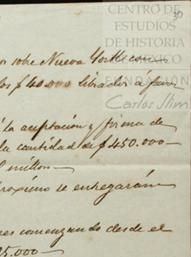 CENTRO DE
ESTUDIOS
DE HISTORIA
FUNDACIÓN
Carlos Slim
30
sobre Nueva York con
los $40.000 librados a fav
la aceptacion y firma de
la cantidad de $450.000
millon
proximo se entregarán
res comenzando desde el
25.000